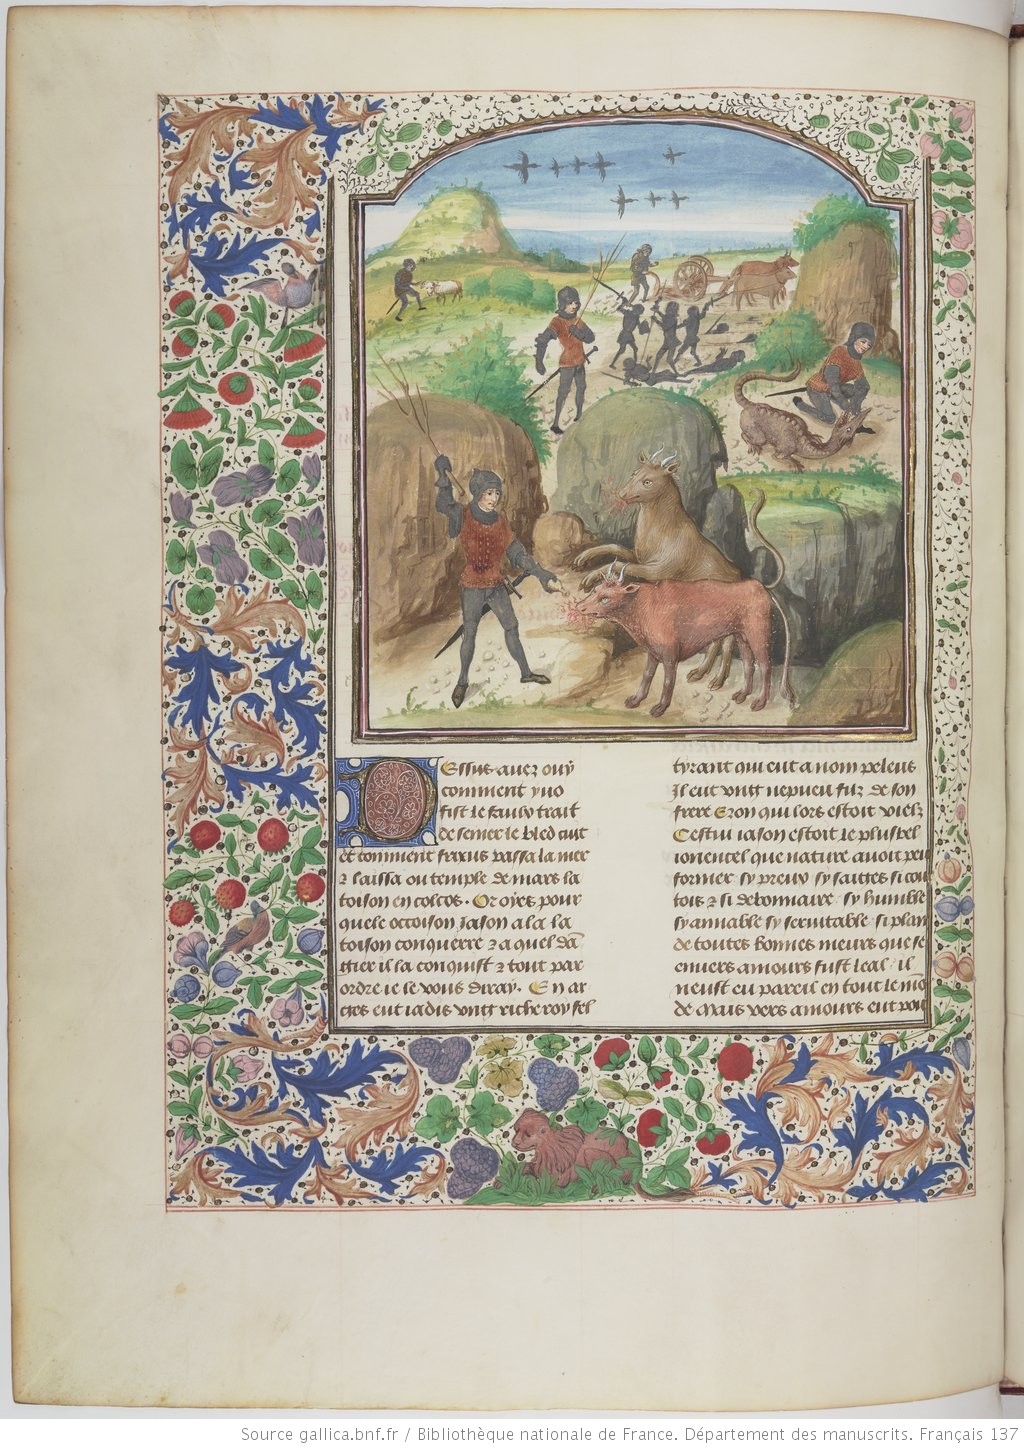 Dessus avez ouy
comment yno
fist le faulx trait
de semer le bled cuit
et comment frixus passa la mer
⁊ laissa ou temple de mars la
toison en colcos. Or oyes pour
quele occoison Jason ala la
toison conquerre ⁊ a quel dā
gier il la conquist ⁊ tout par
ordre je le vous diray. En ar
ges eut iadis vng riche roy fel
tyrant qui eut a nom peleus
Jl eut vng nepueu filz de son
frere Eson qui lors estoit vielz
Cestui iason estoit le plus bel
iouencel que nature auoit peu
former sy preux sy saiges si cour
tois ⁊ si debonnaire sy humble
sy amiable sy seruitable si plain
de toutes bonnes meurs que se
enuers amours fust leal il
neust eu pareil en tout le mō
de Mais vers amours eut
Source gallica.bnf.fr / Bibliothèque nationale de France. Département des manuscrits. Français 137